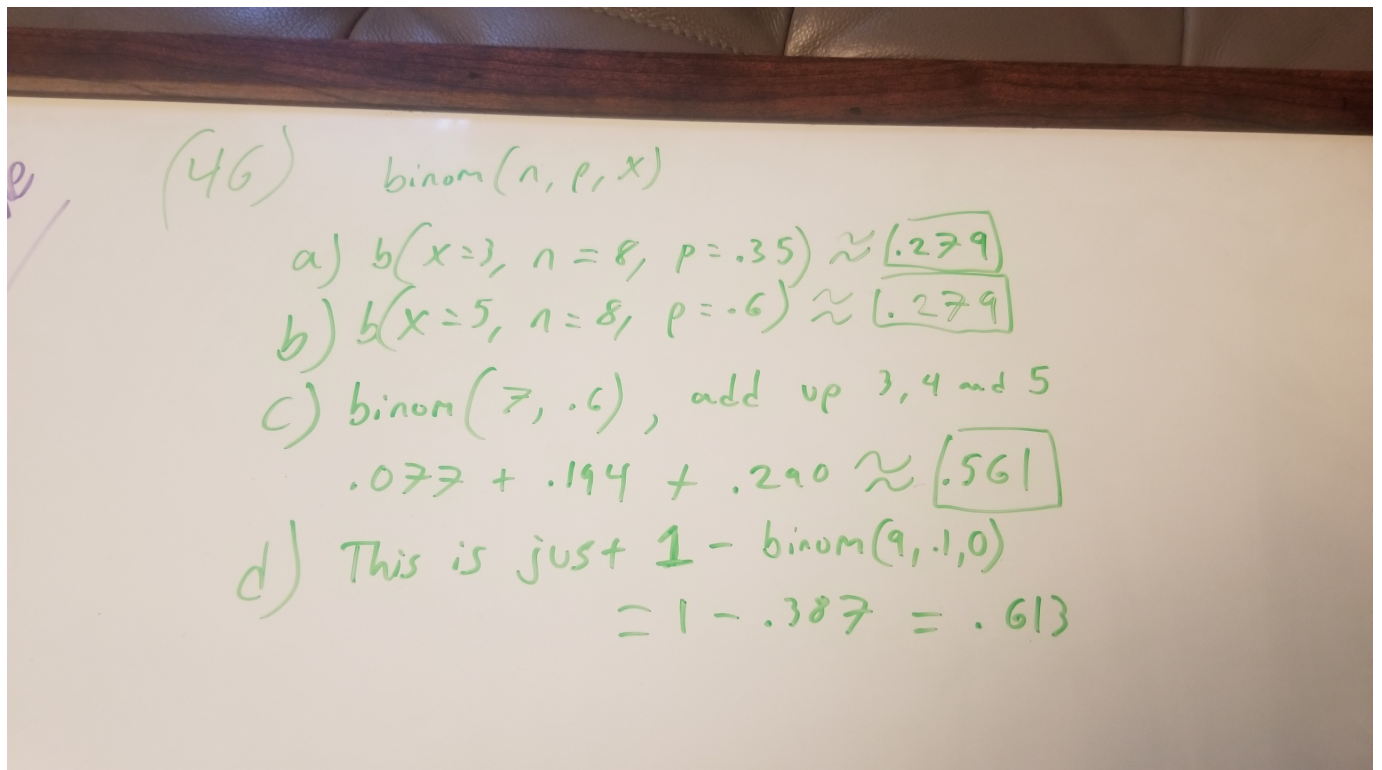 (46) binom(n, p, x)
a) b(x=3, n=8, p=.35) ≈ .279
b) b(x=5, n=8, p=.6) ≈ .279
c) binom(7, .6), add up 3, 4 and 5
.077 + .194 + .290 ≈ .561
d) This is just 1 - binom(9, .1, 0)
= 1 - .387 = .613